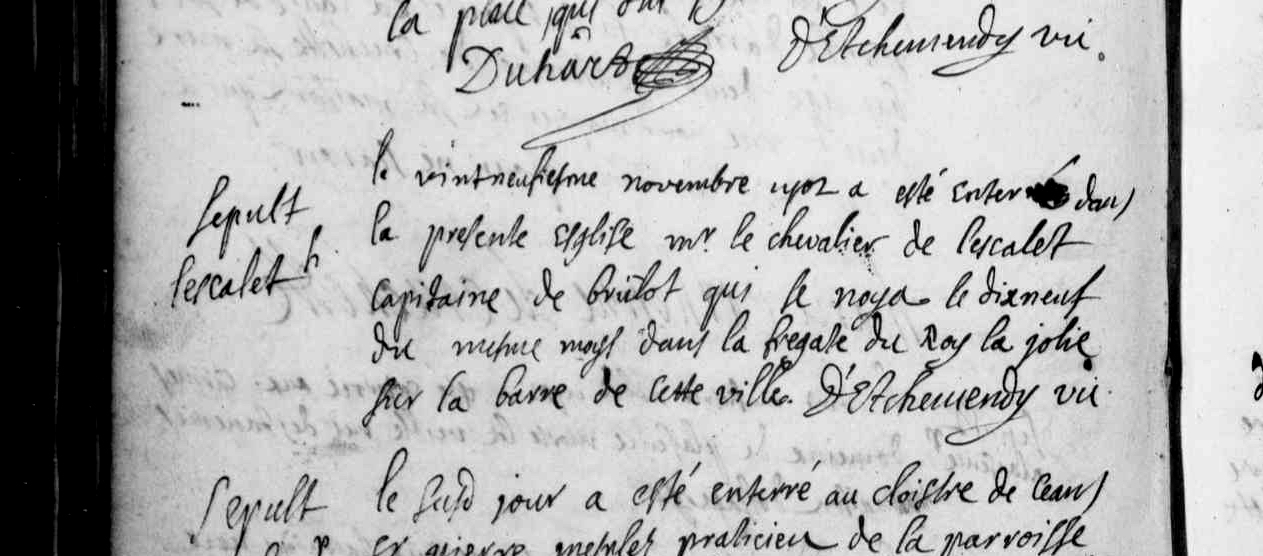 la
Duhârt D'Etchemendy vic.
le vintneufiesme novembre 1702 a esté enterré dans
Sepult la presente Esglise mr. le chevalier de lescalet
lescalet capitaine de brûlot qui se noya le dixneuf
du mesme moys dans la fregate du Roy la jolie
sur la barre de cette ville. D'Etchemendy vic.
Sepult le susd jour a esté enterré au cloistre de ceans
praticien de la parroisse